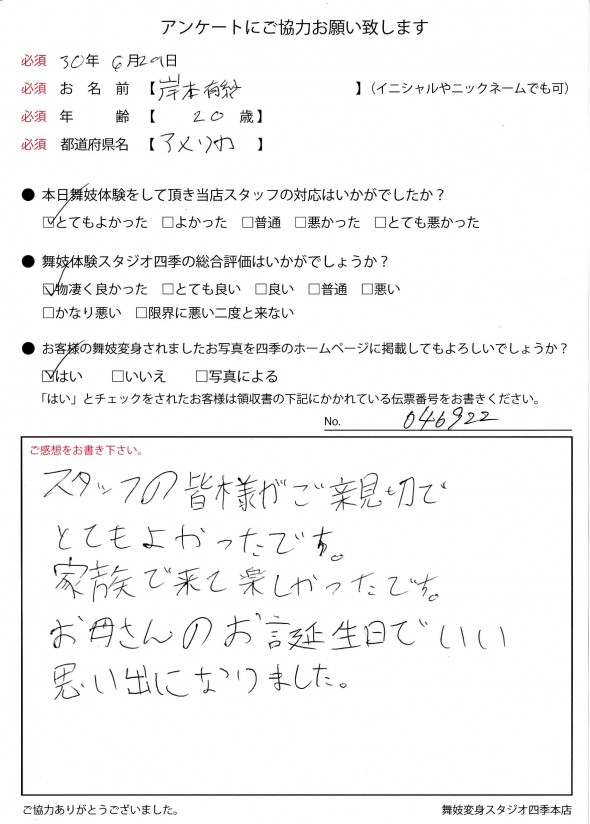 アンケートにご協力お願い致します
必須 30年 6月29日
必須 お名前 【岸本有紗 】（イニシャルやニックネームでも可）
必須 年齢 【 20 歳】
必須 都道府県名 【アメリカ 】
● 本日舞妓体験をして頂き当店スタッフの対応はいかがでしたか？
☑とてもよかった □よかった □普通 □悪かった □とても悪かった
● 舞妓体験スタジオ四季の総合評価はいかがでしょうか？
☑物凄く良かった □とても良い □良い □普通 □悪い
□かなり悪い □限界に悪い二度と来ない
● お客様の舞妓変身されましたお写真を四季のホームページに掲載してもよろしいでしょうか？
☑はい □いいえ □写真による
「はい」とチェックをされたお客様は領収書の下記にかかれている伝票番号をお書きください。
No. 046922
ご感想をお書き下さい。
スタッフの皆様がご親切で
とてもよかったです。
家族で来て楽しかったです。
お母さんのお誕生日でいい
思い出になりました。
ご協力ありがとうございました。 舞妓変身スタジオ四季本店